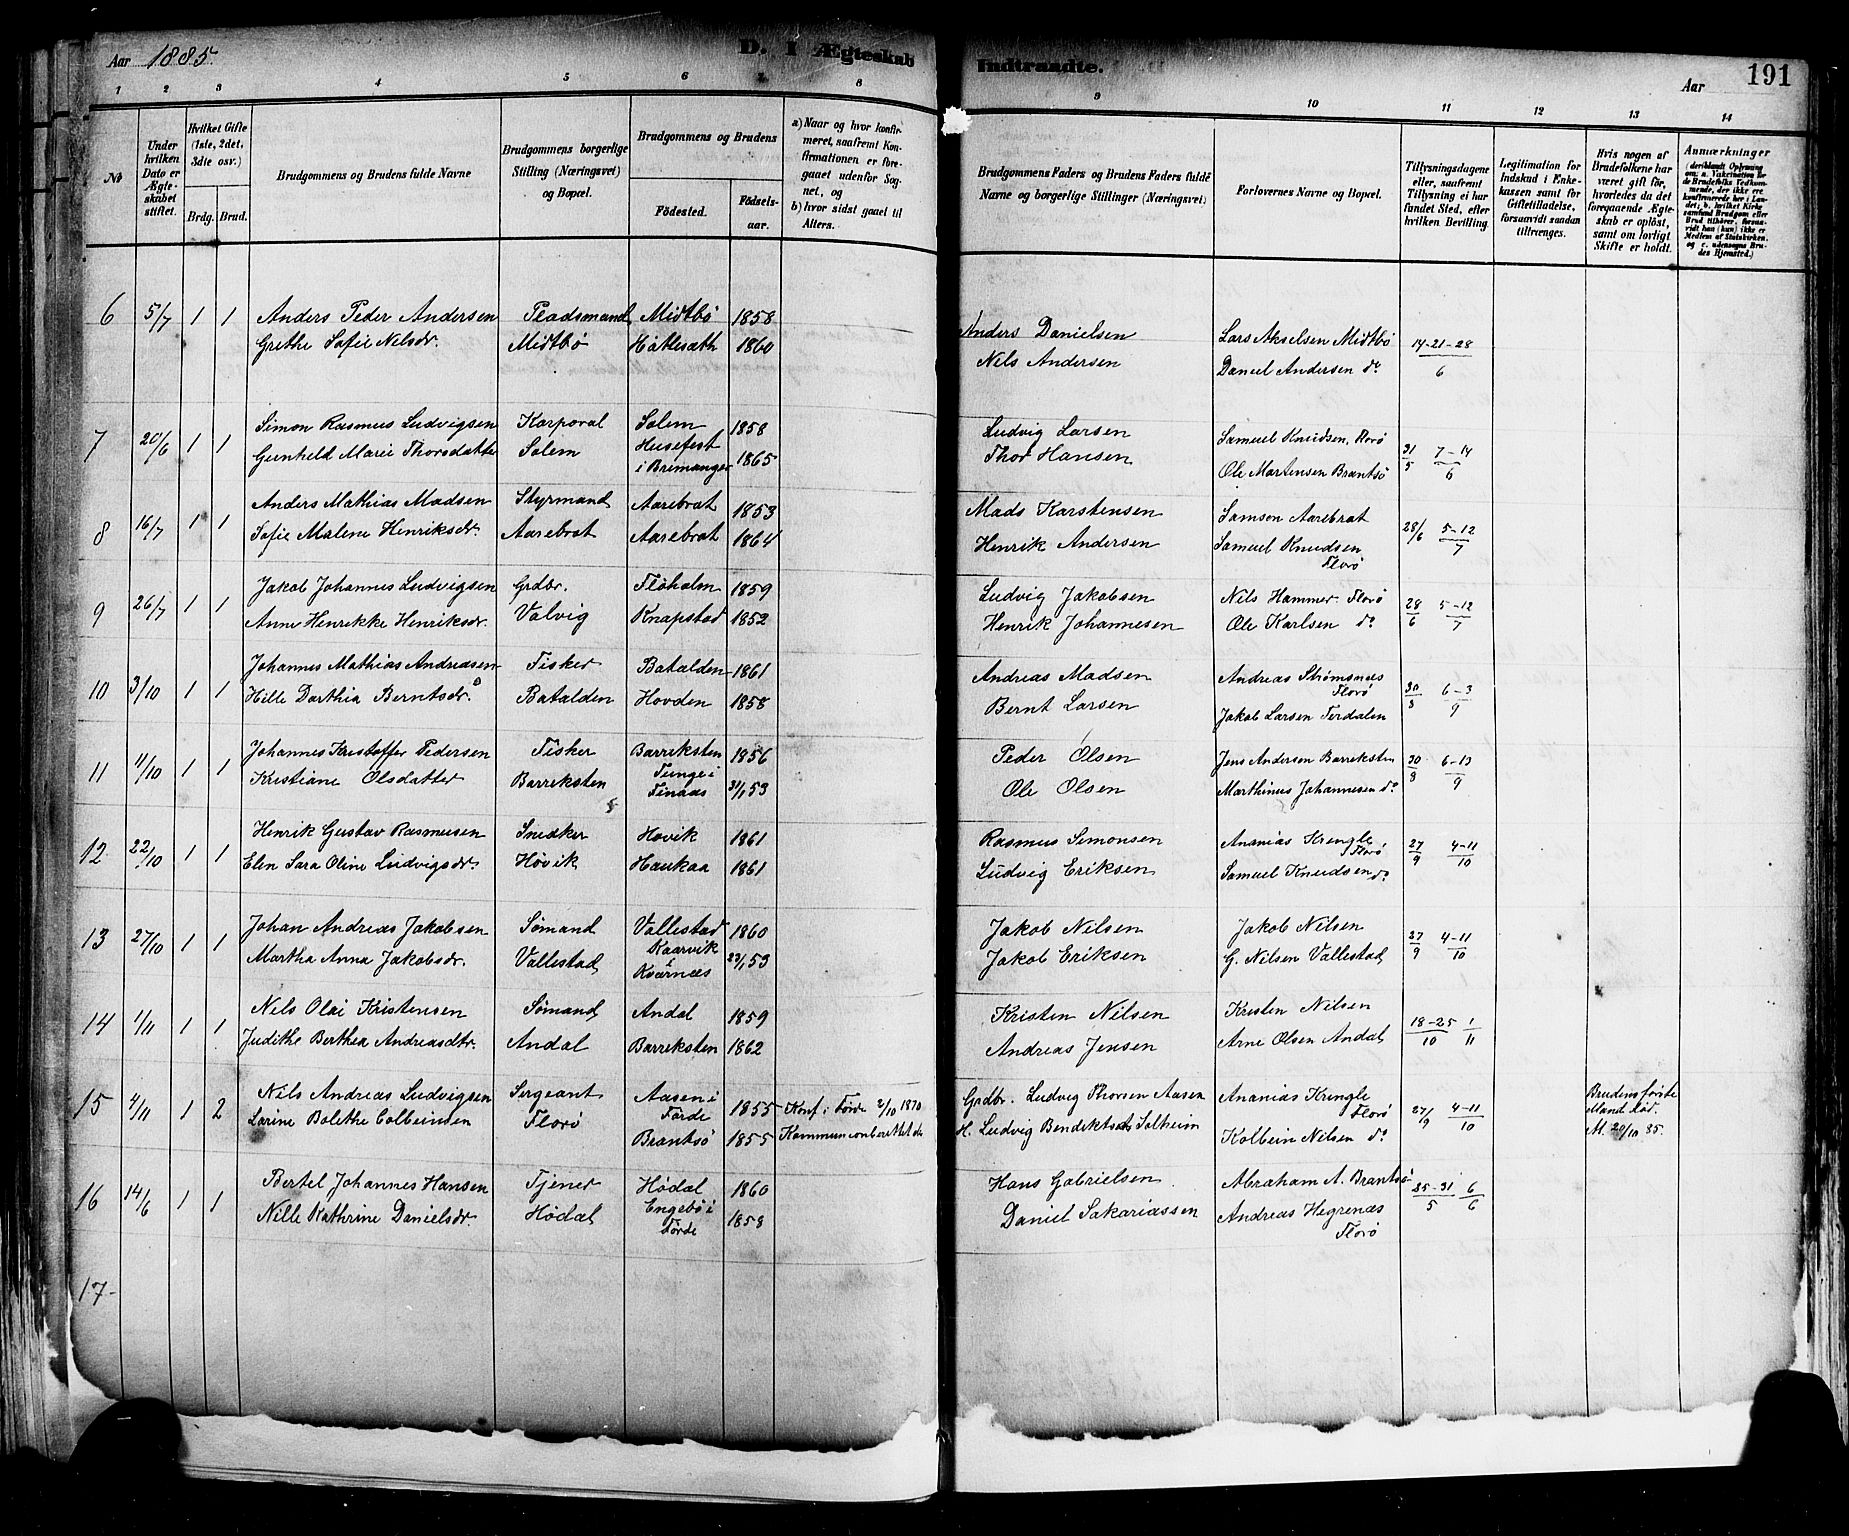 Aar 1885. D. I Ægteskab Indtraadte. Aar 191
1 2 3 4 5 6 7 8 9 10 11 12 13 14
№
Under hvilken Dato er Ægteskabet stiftet.
Hvilket Gifte (1ste, 2det, 3die osv.)
Brdg. Brud.
Brudgommens og Brudens fulde Navne
Brudgommens borgerlige Stilling (Næringsvei) og Bopæl.
Brudgommens og Brudens
Födested.
Födselsaar.
a) Naar og hvor konfirmeret, saafremt Konfirmationen er foregaaet udenfor Sognet, og
b) hvor sidst gaaet til Alters.
Brudgommens Faders og Brudens Faders fulde Navne og borgerlige Stillinger (Næringsvei)
Forlovernes Navne og Bopæl.
Tillysningsdagene eller, saafremt Tillysning ei har fundet Sted, efter hvilken Bevilling.
Legitimation for Indskud i Enkekassen samt for Giftetilladelse, forsaavidt saadan tiltrænges.
Hvis nogen af Brudefolkene har været gift før, hvorledes da det foregaaende Ægteskab er oplöst, samt om lovligt Skifte er holdt.
Anmærkninger (deriblandt Oplysning om: a. Vaccination for de Brudefolks Vedkommende, der ikke ere konfirmerede her i Landet; b. hvilket Kirkesamfund Brudgom eller Brud tilhörer, forsaavidt han (hun) ikke er Medlem af Statskirken, og c. udensogns Brudes Hjemsted.)
6 5/7 1 1 Anders Peder Andersen Pladsmand Midtbö 1858 Anders Danielsen Lars Akselsen Midtbö 14-21-28/6
Grethe Sofie Nilsdr. Midtbö Hátlesæth 1860 Nils Andersen Daniel Andersen do
7 20/6 1 1 Simon Rasmus Ludvigsen Korporal Solem 1858 Ludvig Larsen Samuel Knudsen, Florö 31/5 7-14/6
Gunheld Marie Thorsdatter Solem Husefest i Bremanger 1865 Thor Hansen Ole Martensen Brantsö
8 16/7 1 1 Anders Mathias Madsen Styrmand Aarebrot 1853 Mads Karstensen Samson Aarebrat 28/6 5-12/7
Sofie Malene Henriksdr. Aarebrot Aarebrot 1864 Henrik Andersen Samuel Knudsen Florö
9 26/7 1 1 Jakob Johannes Ludvigsen Grdbr. Flöholm 1859 Ludvig Jakobsen Nils Hammer Florö 28/6 5-12/7
Anne Henrikke Henriksdr. Valvig Knapstad 1852 Henrik Johannesen Ole Karlsen do
10 3/10 1 1 Johannes Mathias Andreasen Fisker Batalden 1861 Andreas Madsen Andreas Strömsnes Florö 30/8 6-3/9
Hille Darthia Berntsdr. Batalden Hovden 1858 Bernt Larsen Jakob Larsen Terdalen
11 11/10 1 1 Johannes Kristoffer Pedersen Fisker Barreksten 1856 Peder Olsen Jens Andersen Barreksten 30/8 6-13/9
Kristiane Olsdatter Barreksten Tunge i Finaas 31/1 53 Ole Olsen Marthinus Johannesen do
12 22/10 1 1 Henrik Gustav Rasmusen Snedker Hovik 1861 Rasmus Simonsen Ananias Krengle Florö 27/9 4-11/10
Elen Sara Oline Ludvigsdr. Hövik Haukaa 1861 Ludvig Eriksen Samuel Knudsen do
13 27/10 1 1 Johan Andreas Jakobsen Sömand Vallestad 1860 Jakob Nilsen Jakob Nilsen 27/9 4-11/10
Martha Anna Jakobsdr. Vallestad Kaarvik i Kværnæs 23/1 53 Jakob Eriksen G. Nilsen Vallestad
14 1/11 1 1 Nils Olai Kristensen Sömand Andal 1859 Kristen Nilsen Kristen Nilsen 18-25/10 1/11
Judithe Berthea Andreasdtr. Andal Barreksten 1862 Andreas Jensen Arne Olsen Andal
15 4/11 1 2 Nils Andreas Ludvigsen Sergeant Aasen i Förde 1855 Konf i Förde 2/10 1870 Grdbr. Ludvig Thorsen Aasen Ananias Kringle Florö 27/9 4-11/10 Brudens förste Mand död.
Larine Bolethe Colbeinsen Florö Brantsö 1855 H. Ludvig Bendiktsen Solheim Kolbein Nilsen do M. 20/10 85.
16 14/6 1 1 Bertel Johannes Hansen Tjener Hödal 1860 Hans Gabrielsen Abraham A. Brantsö 25-31/5 6/6
Nille Kathrine Danielsdr. Hödal Engebö i Förde 1858 Daniel Sakariassen Andreas Hegrenæs Florö
17